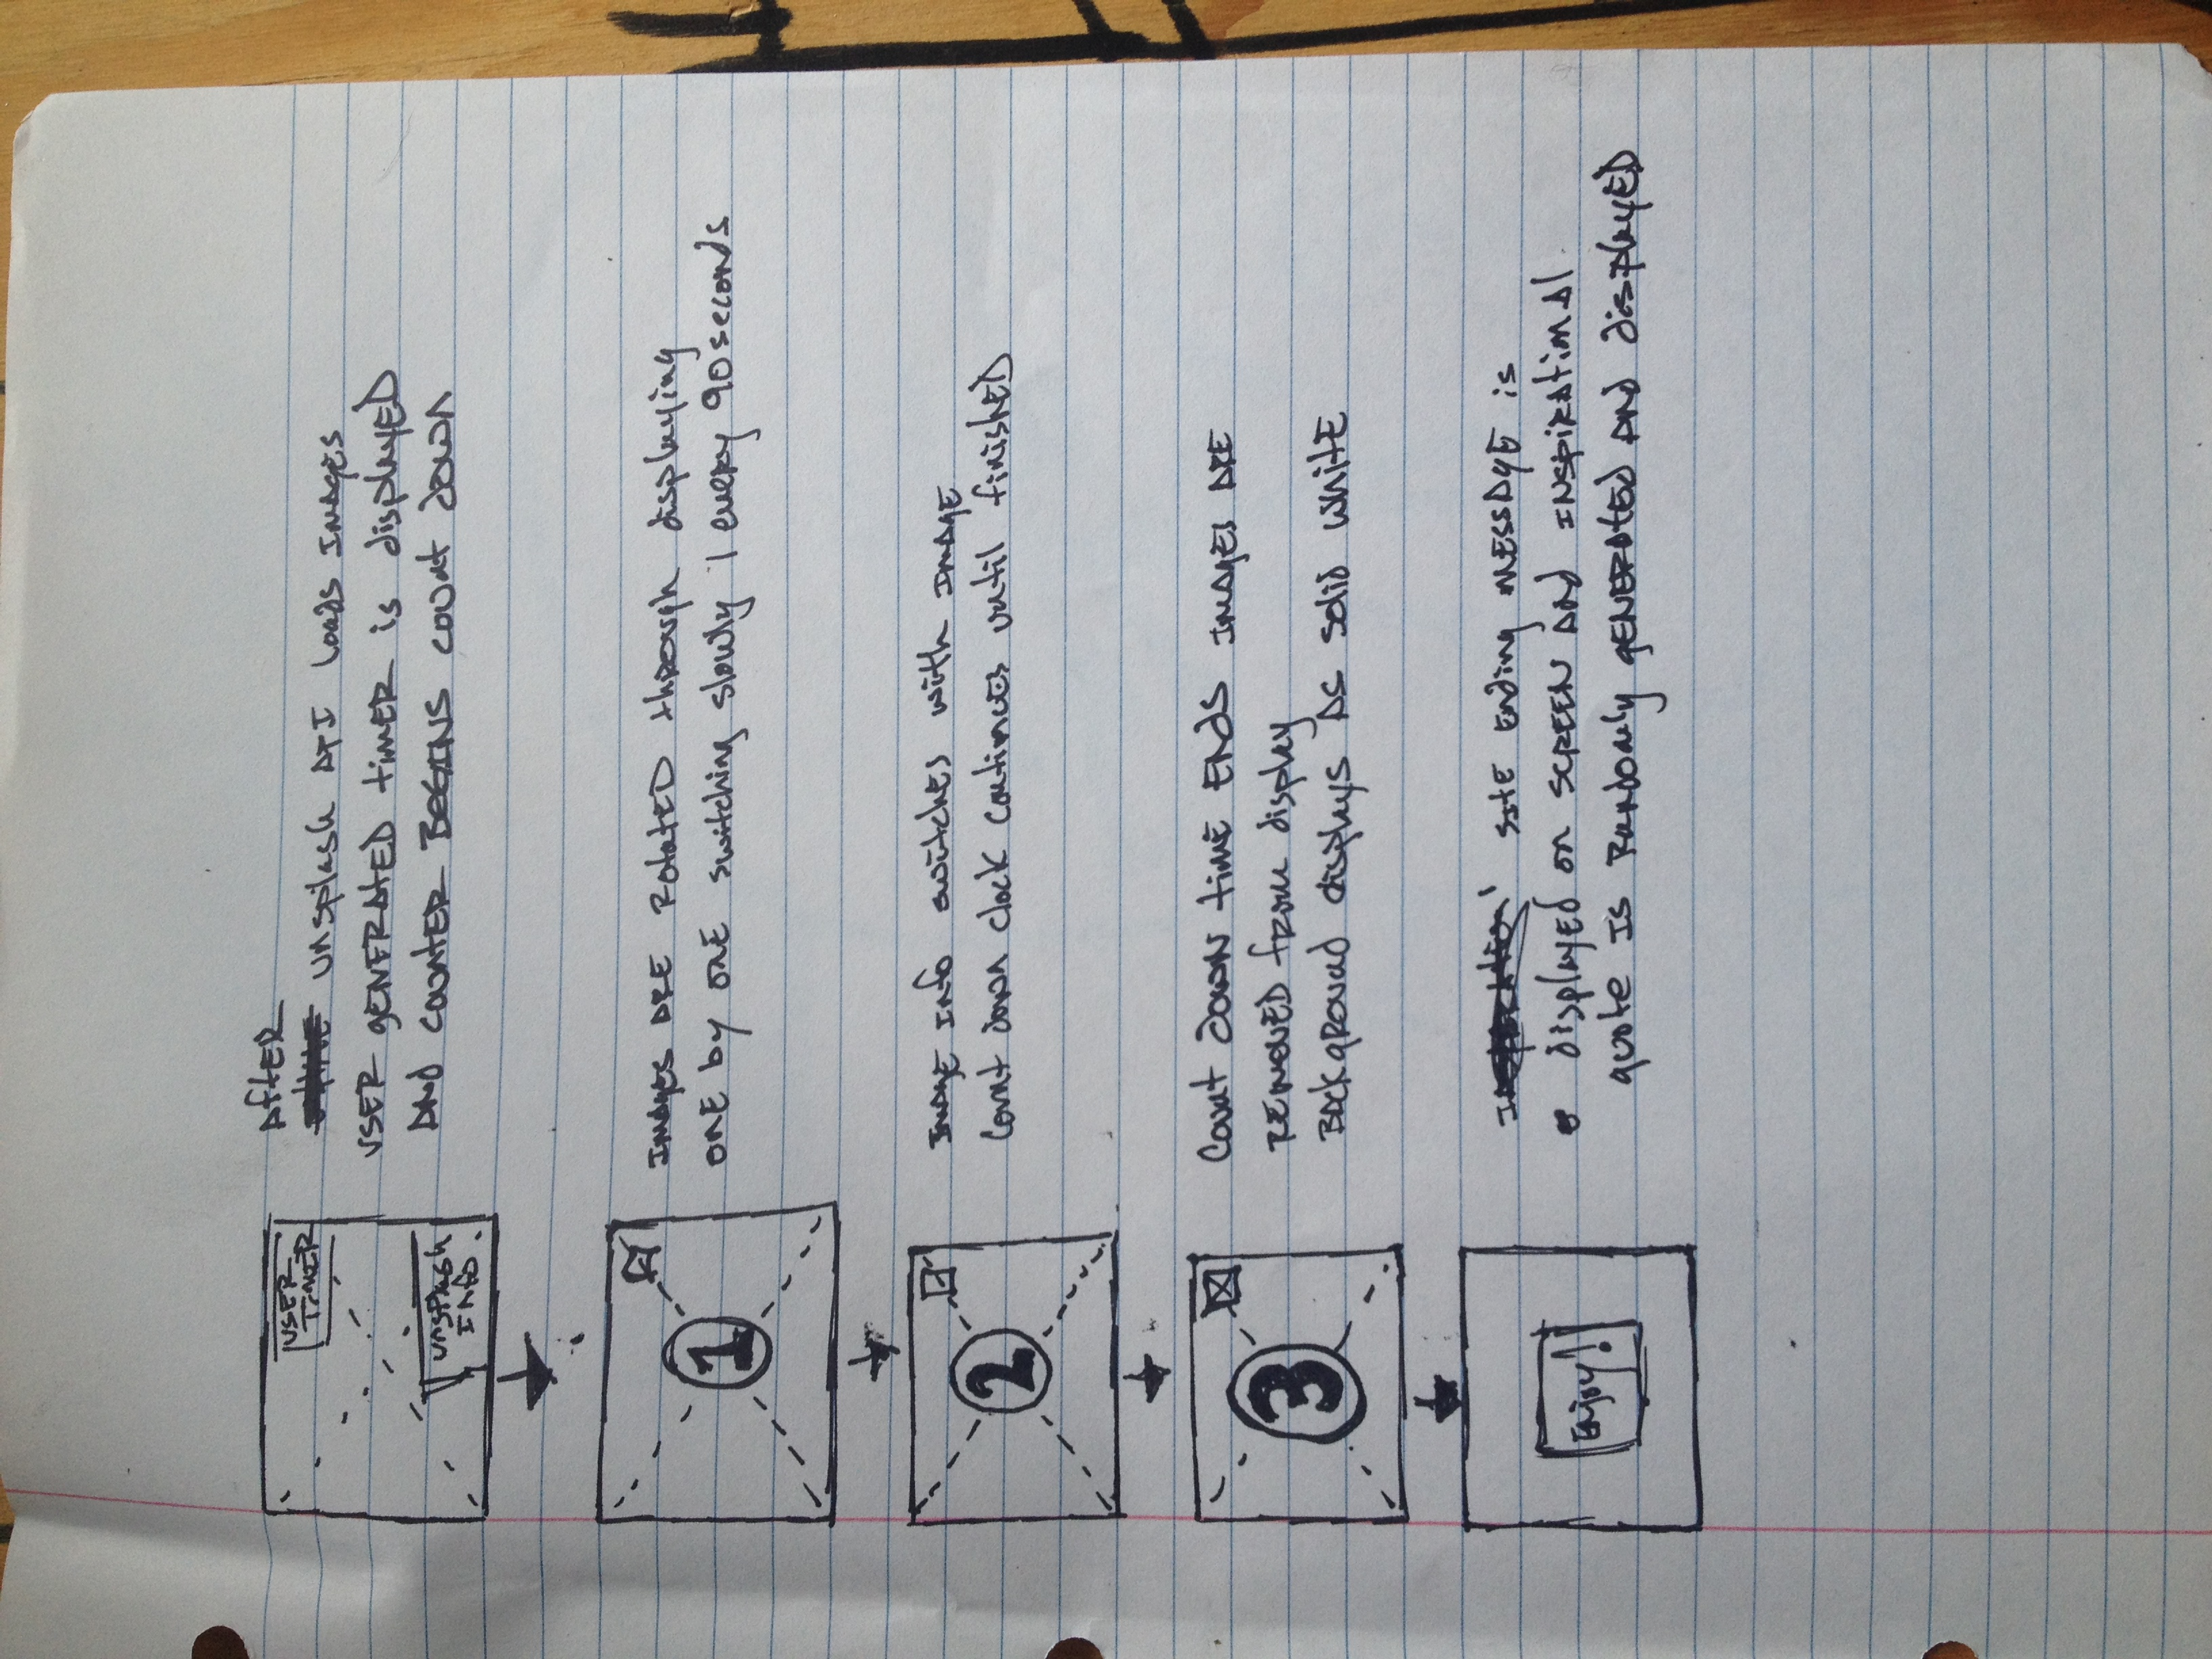 USER
TIMER
UNSPLASH
INFO
AFTER
UNSPLASH API LOADS IMAGES
USER GENERATED TIMER IS DISPLAYED
AND COUNTER BEGINS COUNT DOWN
1
IMAGES ARE ROTATED THROUGH DISPLAYING
ONE BY ONE SWITCHING SLOWLY 1 EVERY 90 SECONDS
2
IMAGE INFO SWITCHES WITH IMAGE
COUNT DOWN CLOCK CONTINUES UNTIL FINISHED
3
COUNT DOWN TIME ENDS IMAGES ARE
REMOVED FROM DISPLAY
BACKGROUND DISPLAYS AS SOLID WHITE
ENJOY!
SITE ENDING MESSAGE IS
DISPLAYED ON SCREEN AND INSPIRATIONAL
QUOTE IS RANDOMLY GENERATED AND DISPLAYED